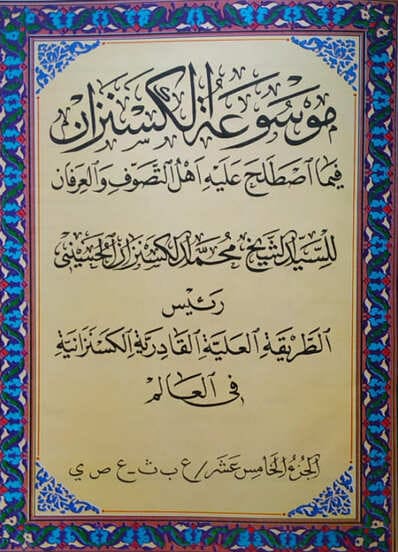 موسوعة الكسنزان
فيما اصطلح عليه أهل التصوف والعرفان
للسيد الشيخ محمد الكسنزان الحسيني
رئيس
الطريقة العلية القادرية الكسنزانية
في العالم
الجزء الخامس عشر / ع ب ث - ع ص ي